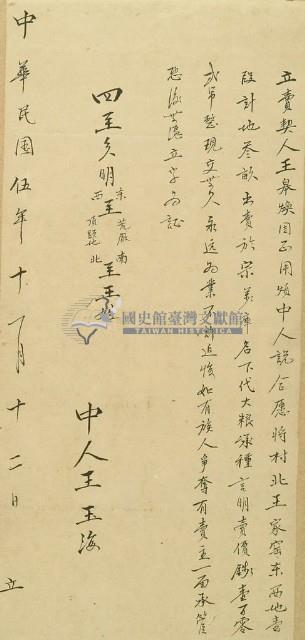 立賣契人王 因正用煩中人說合愿將村北王家窑東西地壹
段計地叁畝出賣於 名下代大粮 種言明賣價錢壹百零
弍吊整現交無欠永远為業不許追悔如有族人爭奪有賣主一面承管
恐後無憑立字為証
四至分明 東 至荒廠 南 至王
西 頂頭地 北
中人王玉海
中華民國伍年十一月十二日 立
國史館臺灣文獻館
TAIWAN HISTORICA